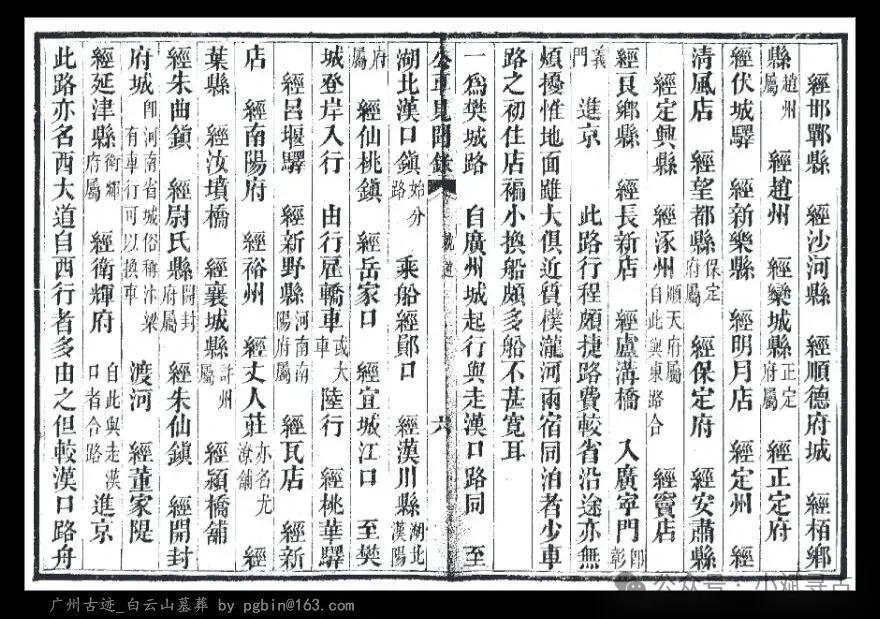 經邯鄲縣　經沙河縣　經順德府城　經栢鄉
縣趙州屬　經趙州　經欒城縣正定府屬　經正定府
經伏城驛　經新樂縣　經明月店　經定州　經
清風店　經望都縣保定府屬　經保定府　經安肅縣
經定興縣　經涿州順天府屬自此與東路合　經竇店
經良鄉縣　經長新店　經盧溝橋　入廣寧門卽彰
義門　進京　此路行程頗捷路費較省沿途亦無
煩擾惟地面雖大俱近質樸瀧河兩宿同泊者少車
路之初住店褊小換船頗多船不甚寬耳
一為樊城路　自廣州城起行與走漢口路同　至
公車見聞錄　就道　六
湖北漢口鎮始分路　乘船經鄖口　經漢川縣湖北漢陽
府屬　經仙桃鎮　經岳家口　經宜城江口　至樊
城登岸入行　由行雇轎車或大車　陸行　經桃華驛
經呂堰驛　經新野縣河南南陽府屬　經瓦店　經新
店　經南陽府　經裕州　經丈人莊亦名尤潦鋪　經
葉縣　經汝墳橋　經襄城縣許州屬　經潁橋舖
經朱曲鎮　經尉氏縣開封府屬　經朱仙鎮　經開封
府城卽河南省城俗稱汴梁有車行可以換車　渡河　經董家隄
經延津縣衛輝府屬　經衛輝府自此與走漢口者合路　進京
此路亦名西大道自西行者多由之但較漢口路舟
公众号·小河寻古
广州古迹_白云山墓葬 by pgbin@163.com